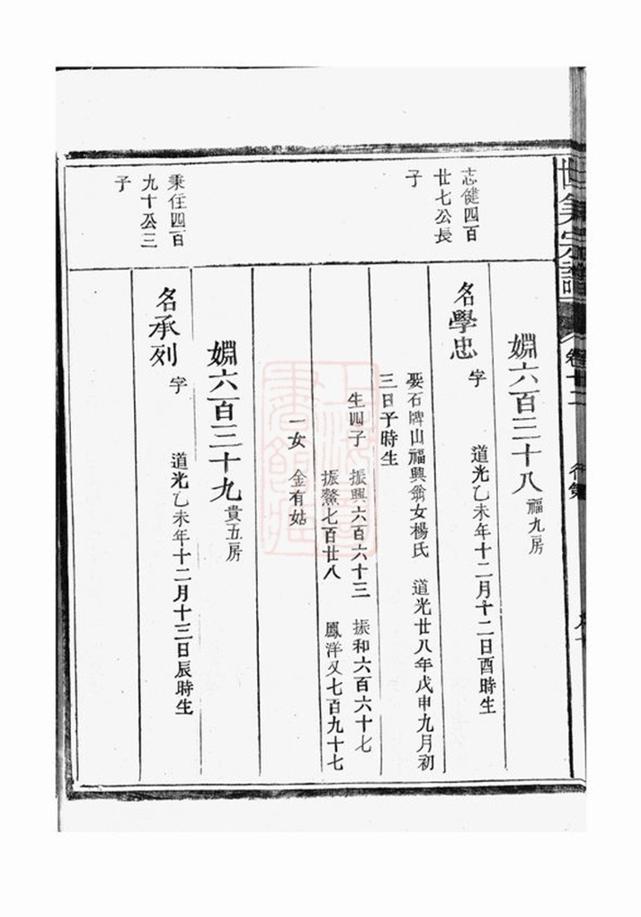 卷十二
行第
嫺六百三十八 福九房
志健四百
廿七公長
子
名學忠 字 道光乙未年十二月十二日酉時生
娶石牌山福興翁女楊氏 道光廿八年戊申九月初
三日子時生
生四子 振興六百六十三 振和六百六十七
振鰲七百廿八 鳳洋又七百九十七
一女 金有姑
嫺六百三十九 貴五房
秉住四百
九十公三
子
名承列 字 道光乙未年十二月十三日辰時生